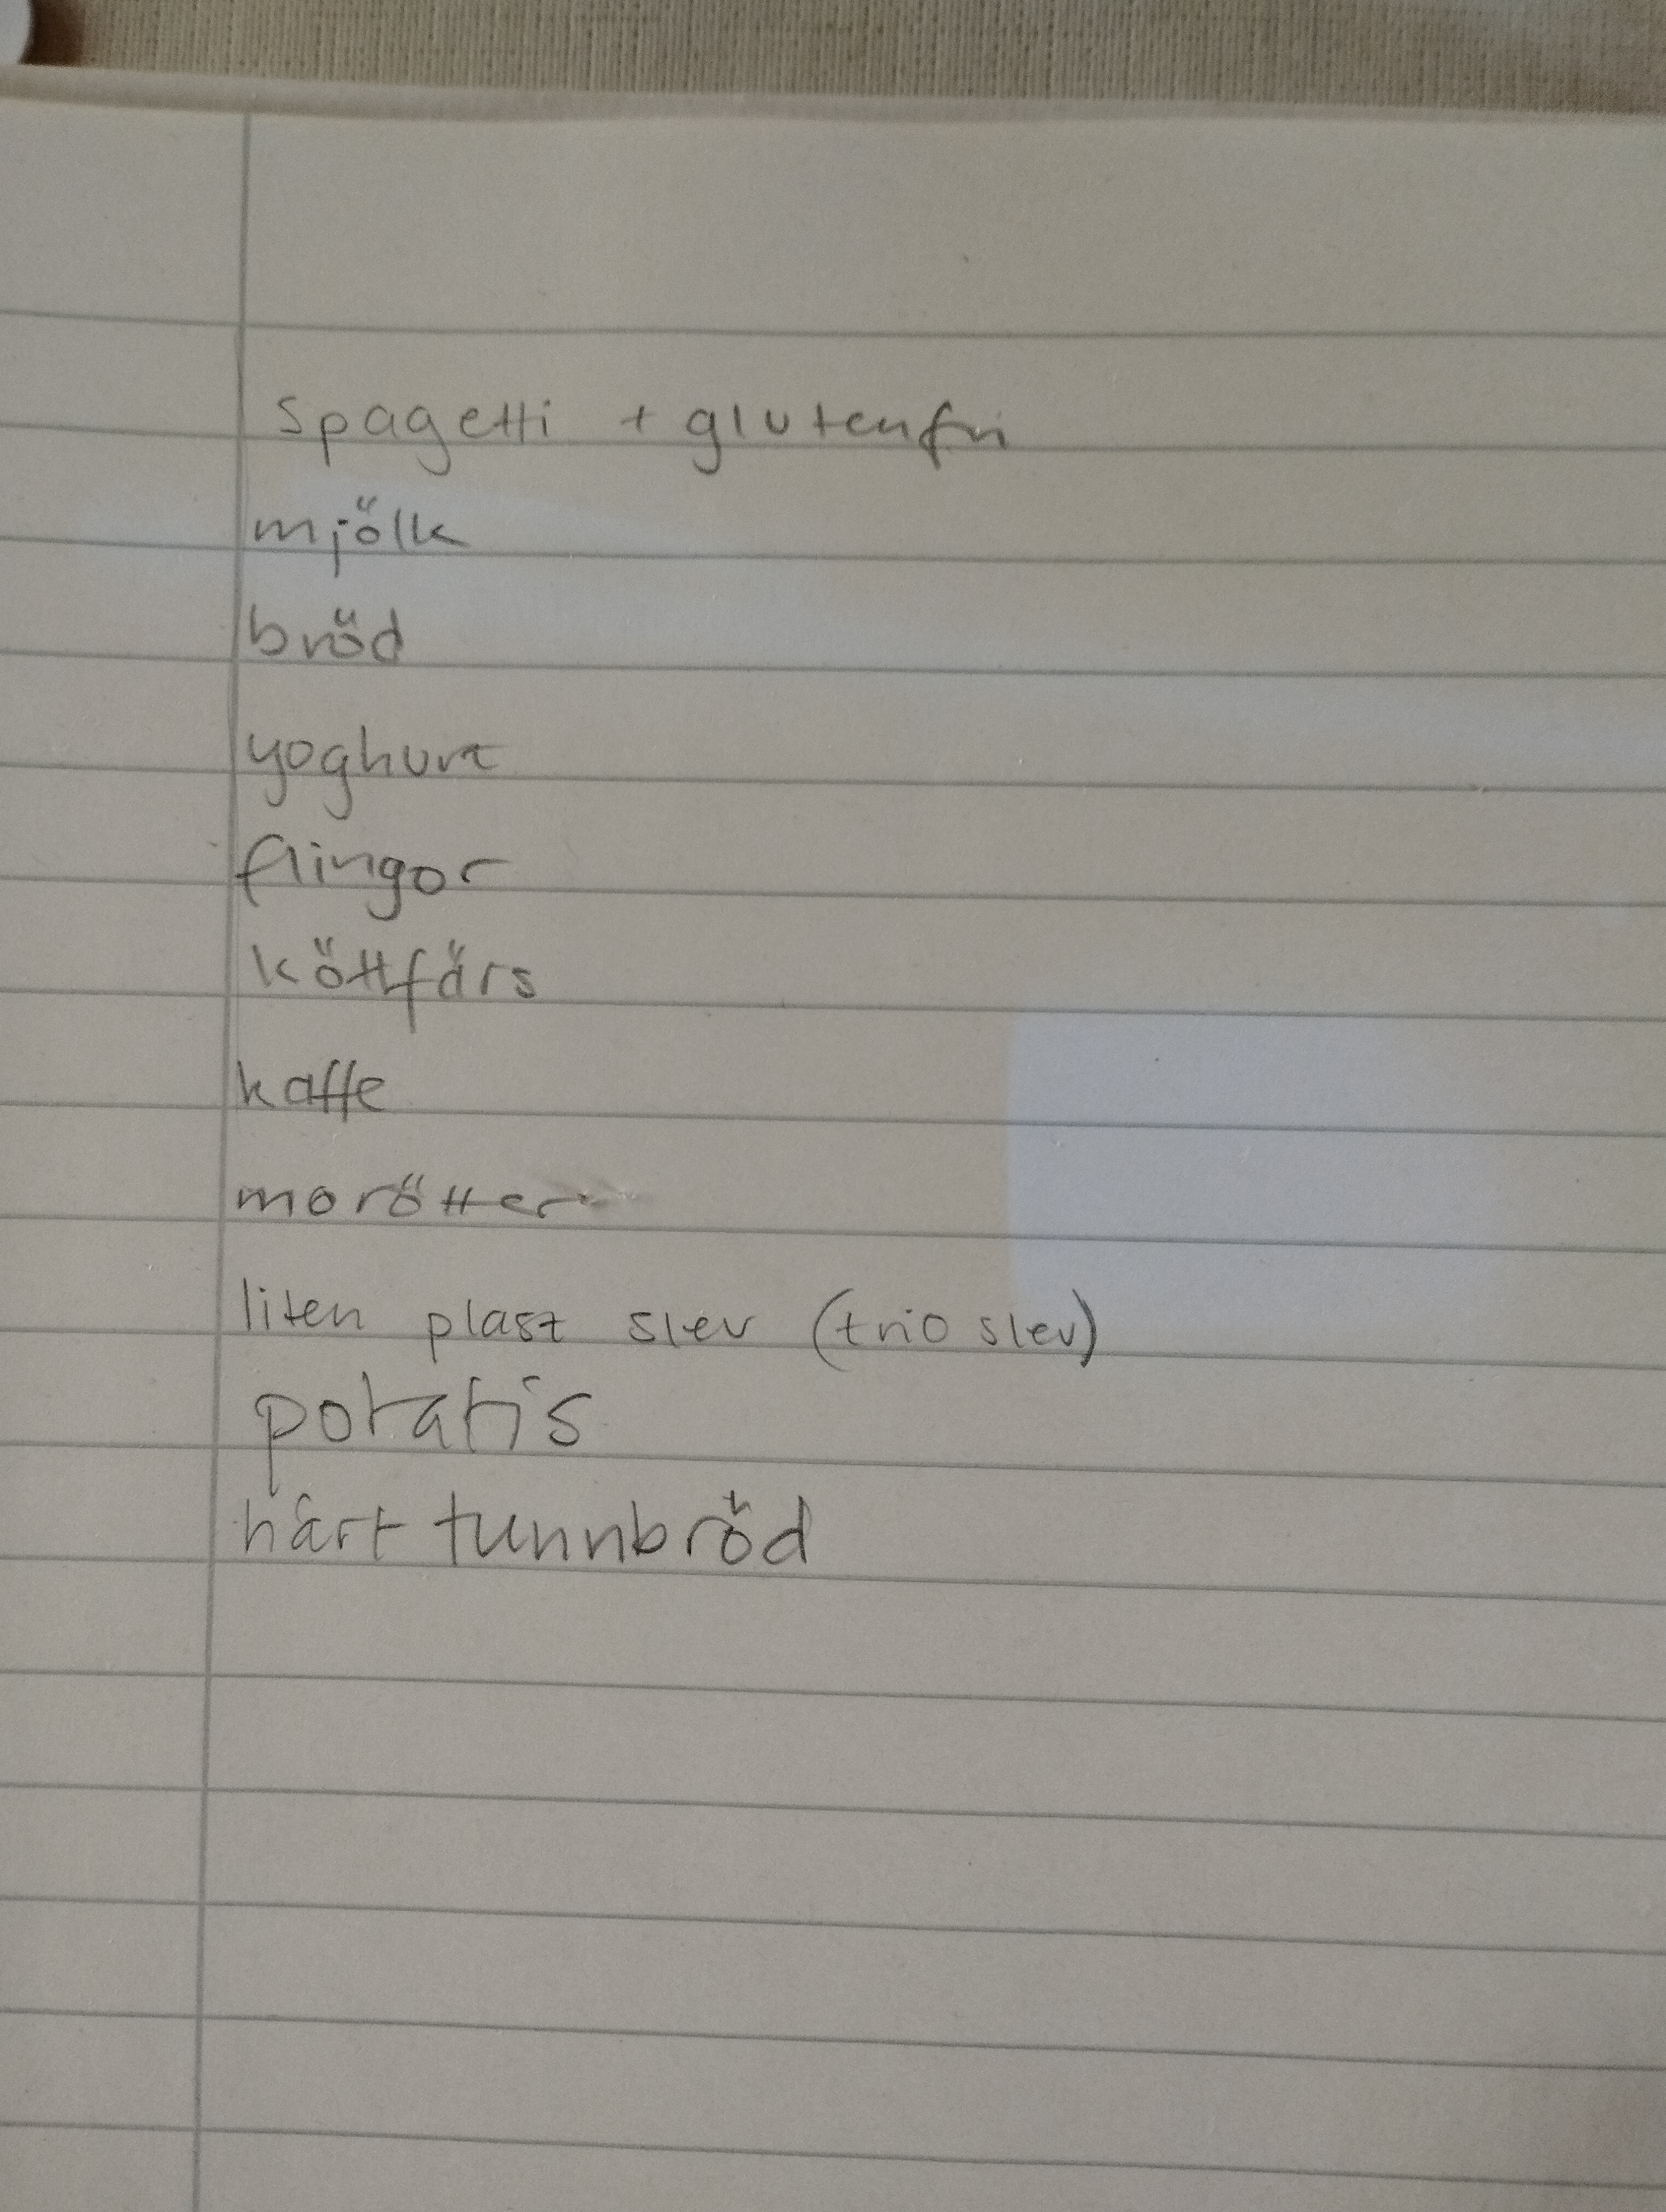 spagetti + glutenfri
mjölk
bröd
yoghurt
flingor
köttfärs
kaffe
morötter
liten plast slev (trio slev)
potatis
hårt tunnbröd